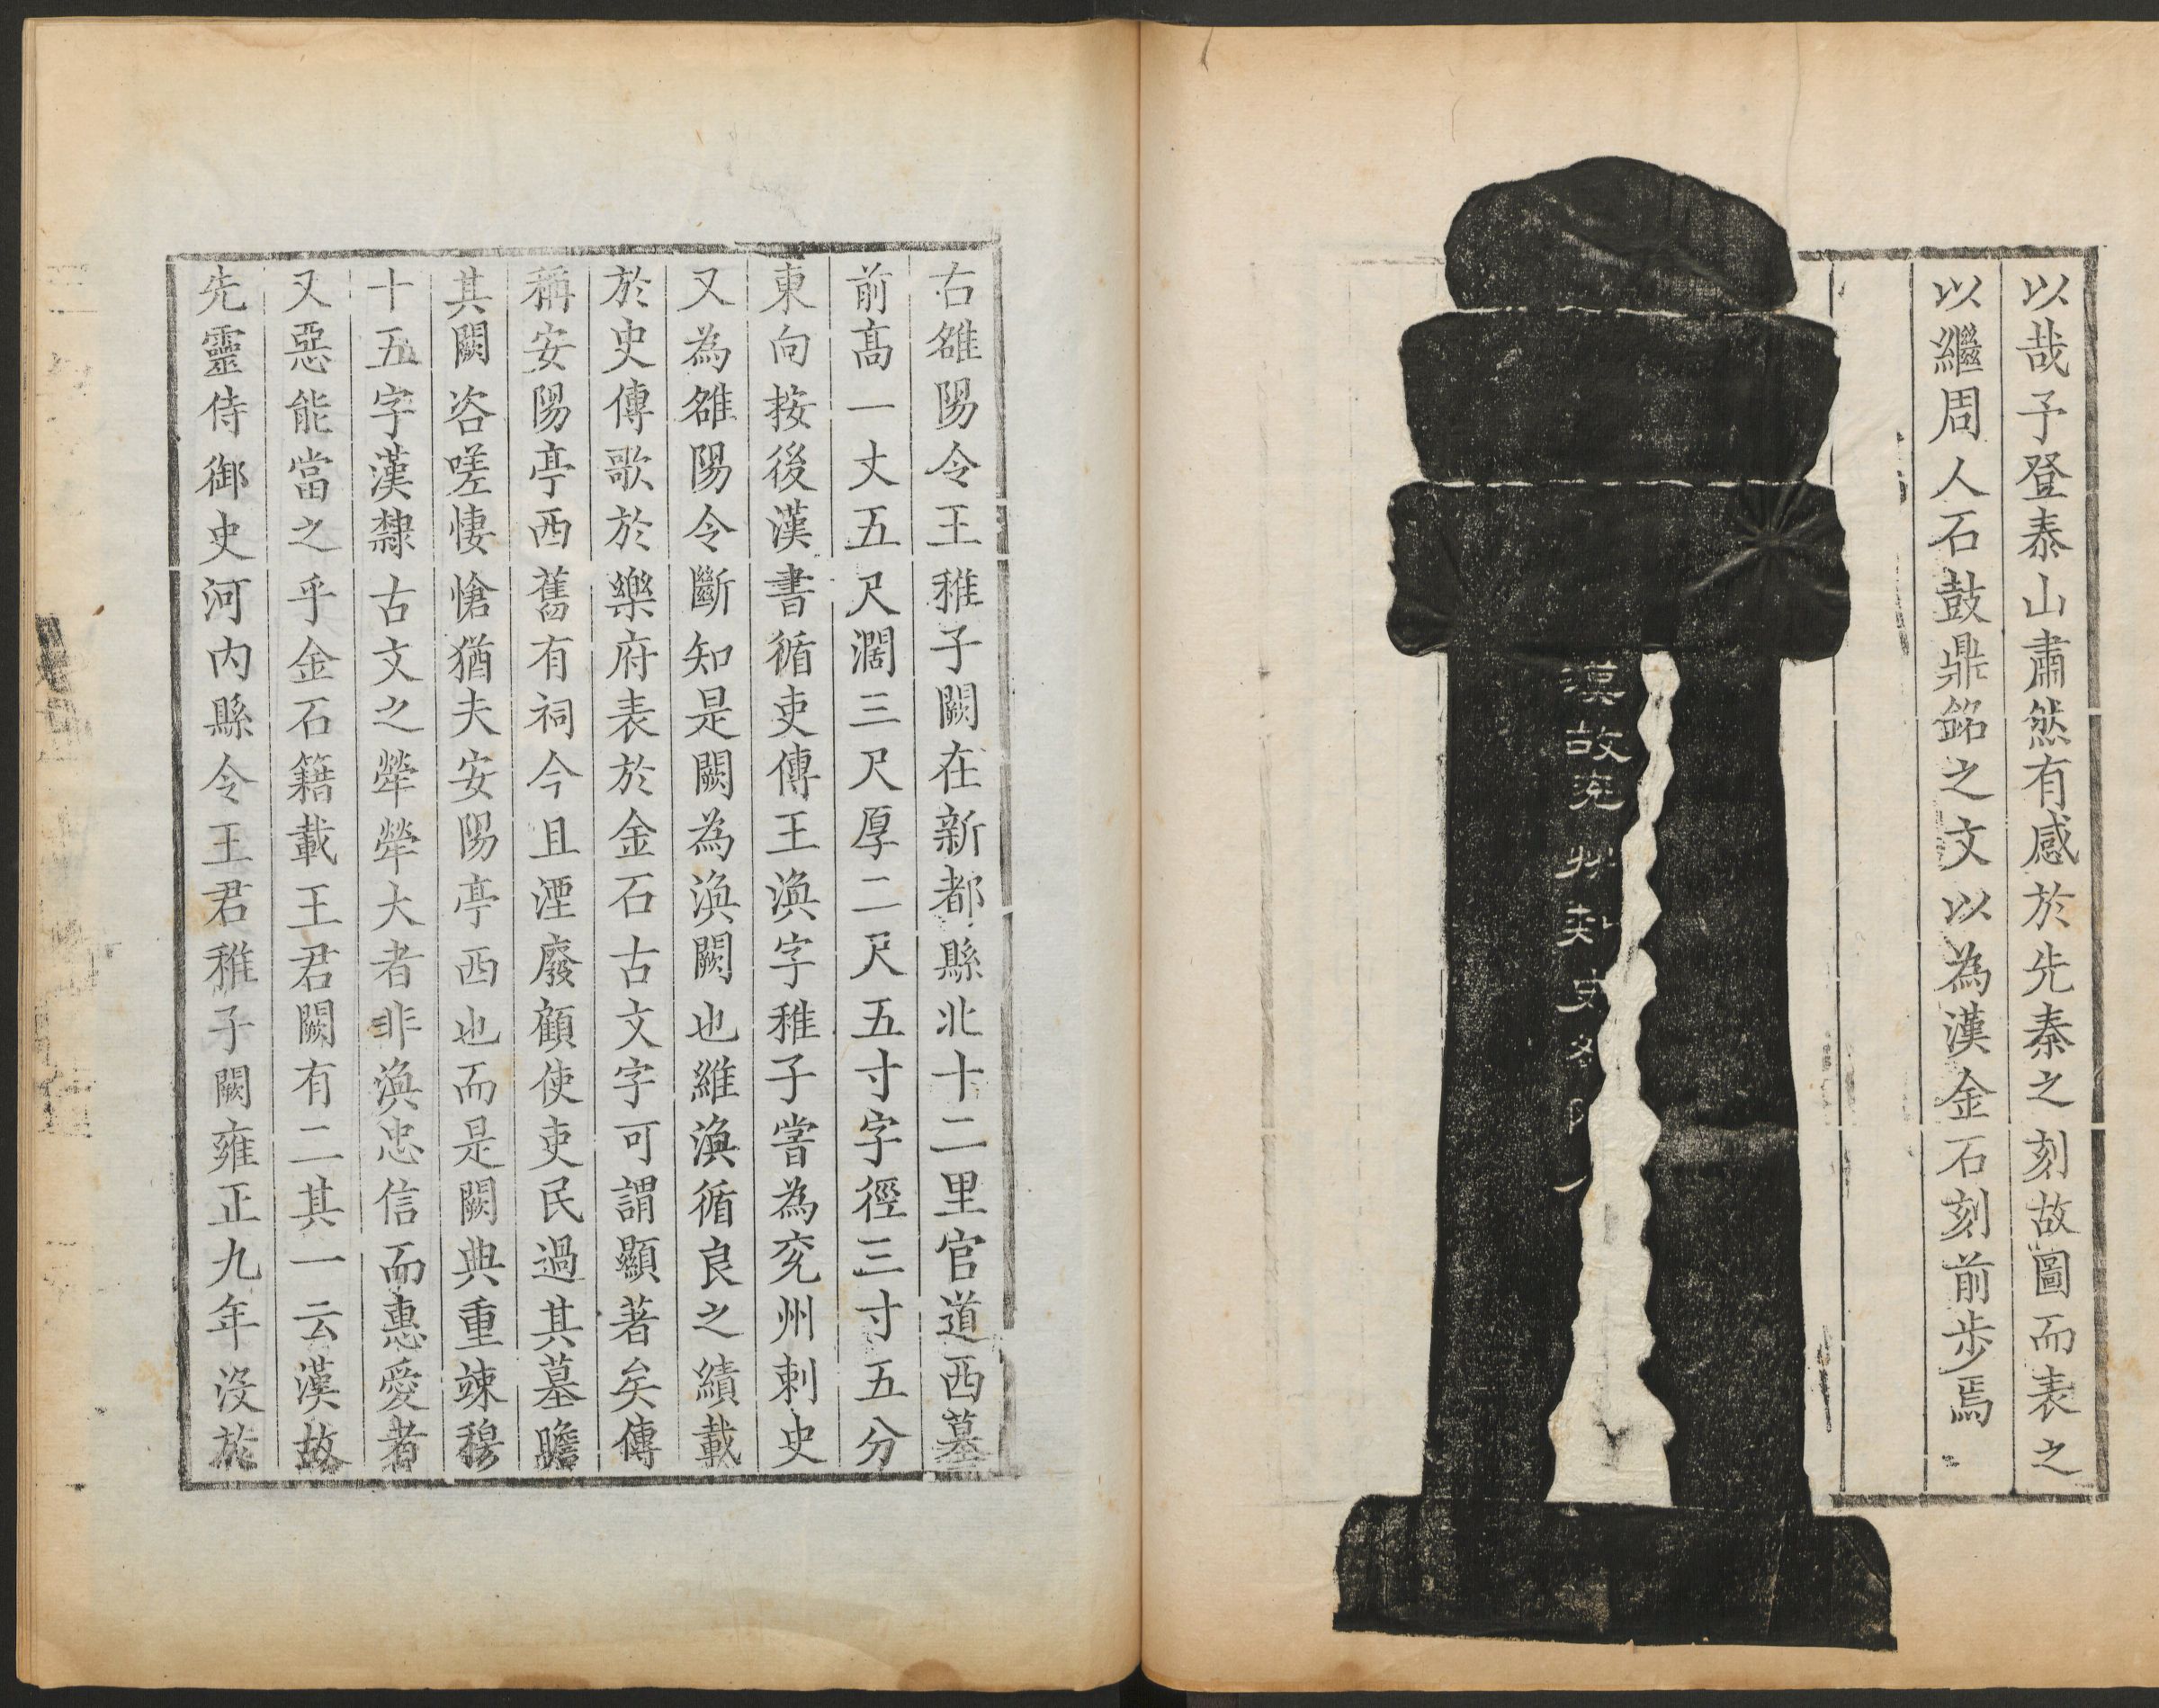 以哉予登泰山肅然有感於先秦之刻故圖而表之
以繼周人石鼓鼎銘之文以為漢金石刻前步焉
漢故兖州刺史雒陽
右雒陽令王稚子闕在新都縣北十二里官道西墓
前高一丈五尺濶三尺厚二尺五寸字徑三寸五分
東向按後漢書循吏傳王渙字稚子嘗為兖州刺史
又為雒陽令斷知是闕為渙闕也維渙循良之績載
於史傳歌於樂府表於金石古文字可謂顯著矣傳
稱安陽亭西舊有祠今且湮廢顧使吏民過其墓瞻
其闕咨嗟悽愴猶夫安陽亭西也而是闕典重竦穆
十五字漢隸古文之犖犖大者非渙忠信而惠愛者
又惡能當之乎金石籍載王君闕有二其一云漢故
先靈侍御史河內縣令王君稚子闕雍正九年沒於